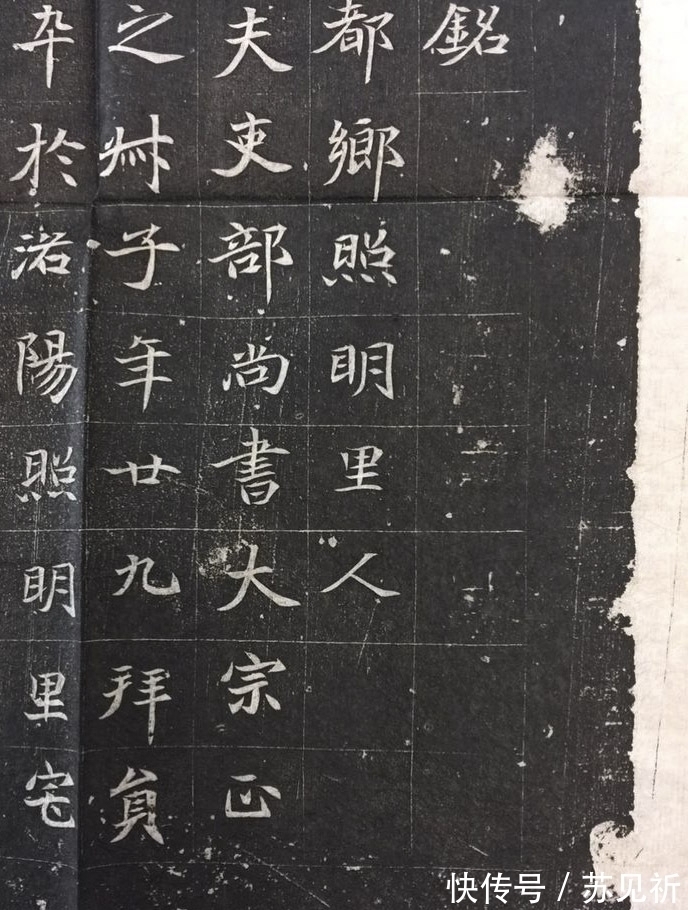 銘
都鄉照明里人
夫吏部尚書大宗正
之子年廿九拜員
卒於洛陽照明里宅
快传号 / 苏见祈